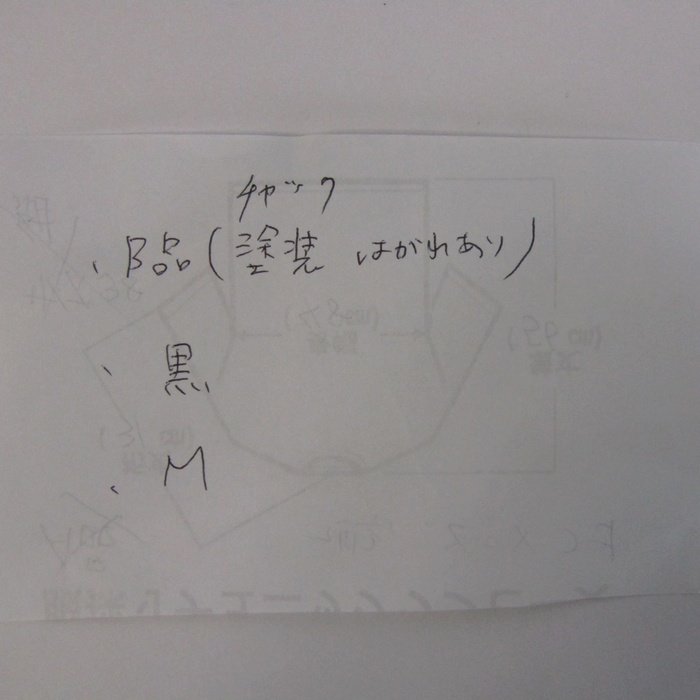 チャック
、B品(塗装 はがれあり)
、黒
、M